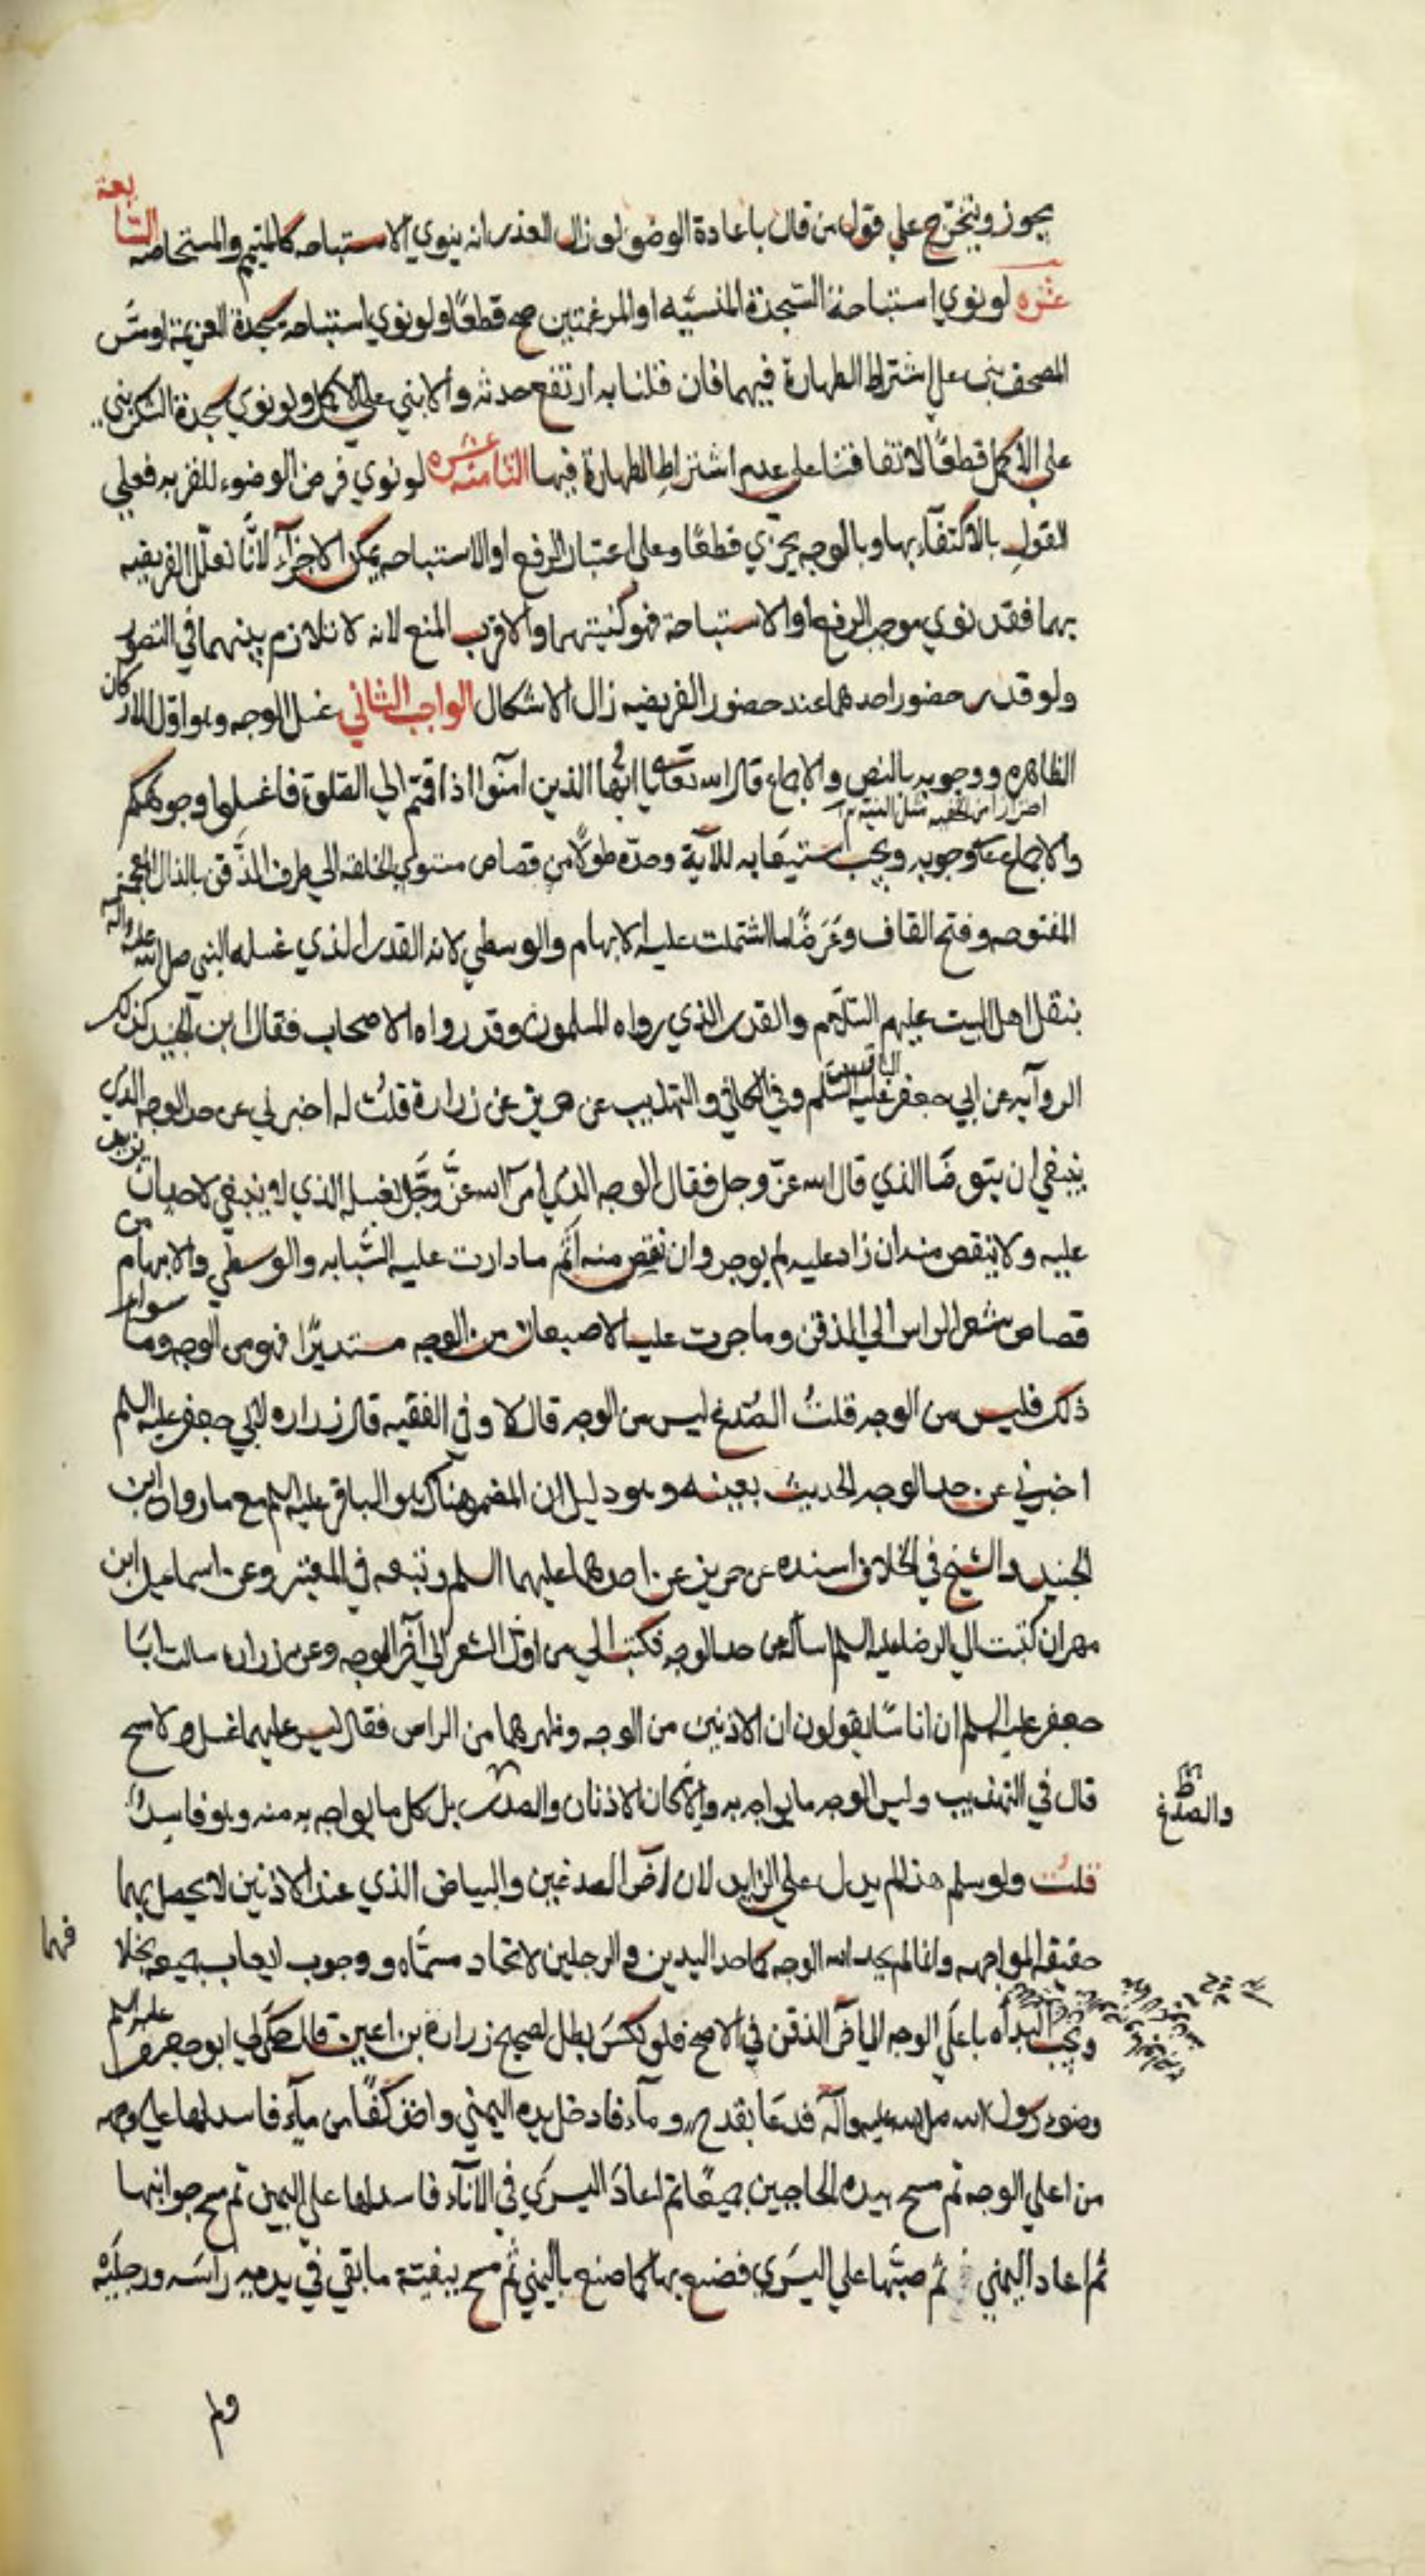 يجوز ويتخرج علي قول من قال باعادة الوضو لو زال العذر انه ينوي الاستباحه كالمتيمم والمستحاضه السابعة
عشره لو نوي استباحة السجدة المنسيه او المرغمتين صح قطعًا ولو نوي استباحة سجدة العزيمة او مسّ
المصحف بنى علي اشتراط الطهارة فيهما فان قلنا به ارتفع حدثه والا بني علي الاكمل ولو نوي سجدة الشكر بني
علي الاكمل قطعًا لاتفاقنا علي عدم اشتراط الطهارة فيها الثامنه عشره لو نوي فرض الوضوء للقربه فعلي
القول بالاكتفآء بها وبالوجه يجزي قطعًا وعلى اعتبار الرفع او الاستباحه يمكن الاجزآء لانَّا نعلل الفريضه
بهما فقد نوي موجب الرفع او الاستباحة فهو كنيتهما والاقرب المنع لانه لا تلازم بينهما في التصور
ولو قدر حضور احدهما عند حضور الفريضه زال الاشكال الواجب الثاني غسل الوجه وهو اول الاركان
الظاهره ووجوبه بالنص والاجماع قال الله تعالى يا ايها الذين امنوا اذا قمتم الي الصلوة فاغسلوا وجوهكم
والاجماع علي وجوبه ويجب استيعابه للآية وحدّه طولًا من قصاص مستوي الخلقه الي طرف الذَقن بالذال المعجمة
المفتوحه وفتح القاف وعَرضًا ما اشتملت عليه الابهام والوسطي لانه القدر الذي غسله النبي صلى الله عليه واله
بنقل اهل البيت عليهم السلام والقدر الذي رواه المسلمون وقد رواه الاصحاب فقال ابن الجنيد كذلك
الروآيه عن ابي جعفر الباقر عليه السلم وفي الكافي والتهذيب عن حريز عن زرارة قلتُ له اخبرني عن حد الوجه الذي
ينبغي ان يتوضّا الذي قال الله عزّ وجل فقال الوجه الذي امر الله عزَّ وجَّل بغسله الذي لا ينبغي لاحد ان يزيد
عليه ولا ينقص منه ان زاد عليه لم يوجر وان نقص منه اثم ما دارت عليه السّبابه والوسطي والابهام من
قصاص شعر الراس الي الذقن وما جرت عليه الاصبعان من الوجه مستديرًا فهو من الوجه وما سوى
ذلك فليس من الوجه قلتُ الصُدغ ليس من الوجه قال لا وفي الفقيه قال زراره لابي جعفر عليه السلم
اخبرني عن حد الوجه الحديث بعينه وهو دليل ان المضمر هناك هو الباقر عليه السلم مع ما رواه ابن
الجنيد والشيخ في الخلاف اسنده عن حريز عن احدهما عليهما السلم وتبعه في المعتبر وعن اسماعيل ابن
مهران كتبت الي الرضا عليه السلم اسأله عن حد الوجه فكتب الي من اول الشعر الي آخر الوجه وعن زراره سالت ابَا
جعفر عليه السلم ان اناسًا يقولون ان الاذنين من الوجه وظهرهما من الراس فقال ليس عليهما غسل ولا مسح
قال في التهذيب وليس الوجه ما يواجه به والا لكان الاذنان والصدر بل كل ما يواجه به منه وهو فاسد
والصدغ
قلت ولو سلم هذا لم يدل علي الزايد لان ارض الصدغين والبياض الذي عند الاذنين لا يحصل بهما
حقيقة المواجهه وانما لم يحد الله الوجه كما حد اليدين والرجلين لاتحاد مسمّاه ووجوب ايعاب جميعه بخلا
فهما
ويجب البدأه باعلَي الوجه الي اخر الذقن في الاصح فلو نكس بطل لصحيح زرارة بن اعين قال حكي لي ابو جعفر عليه السلم
وضوء رسول الله صلى الله عليه وآله فدعَا بقدح من مآء فادخل يده اليمني واخذ كفًا من مآء فاسدلها علي وجهه
من اعلي الوجه ثم مسح بيده الحاجبين جميعًا ثم اعادَ اليسرَي في الانآء فاسدلها علي اليمين ثم مسح جوانبها
ثم اعاد اليمني ثم صبّها علي اليسَرَي فصنع بها كما صنع باليمني ثُم مسح ببقية ما بقي في يديه راسَه ورجلَيْه
ولم